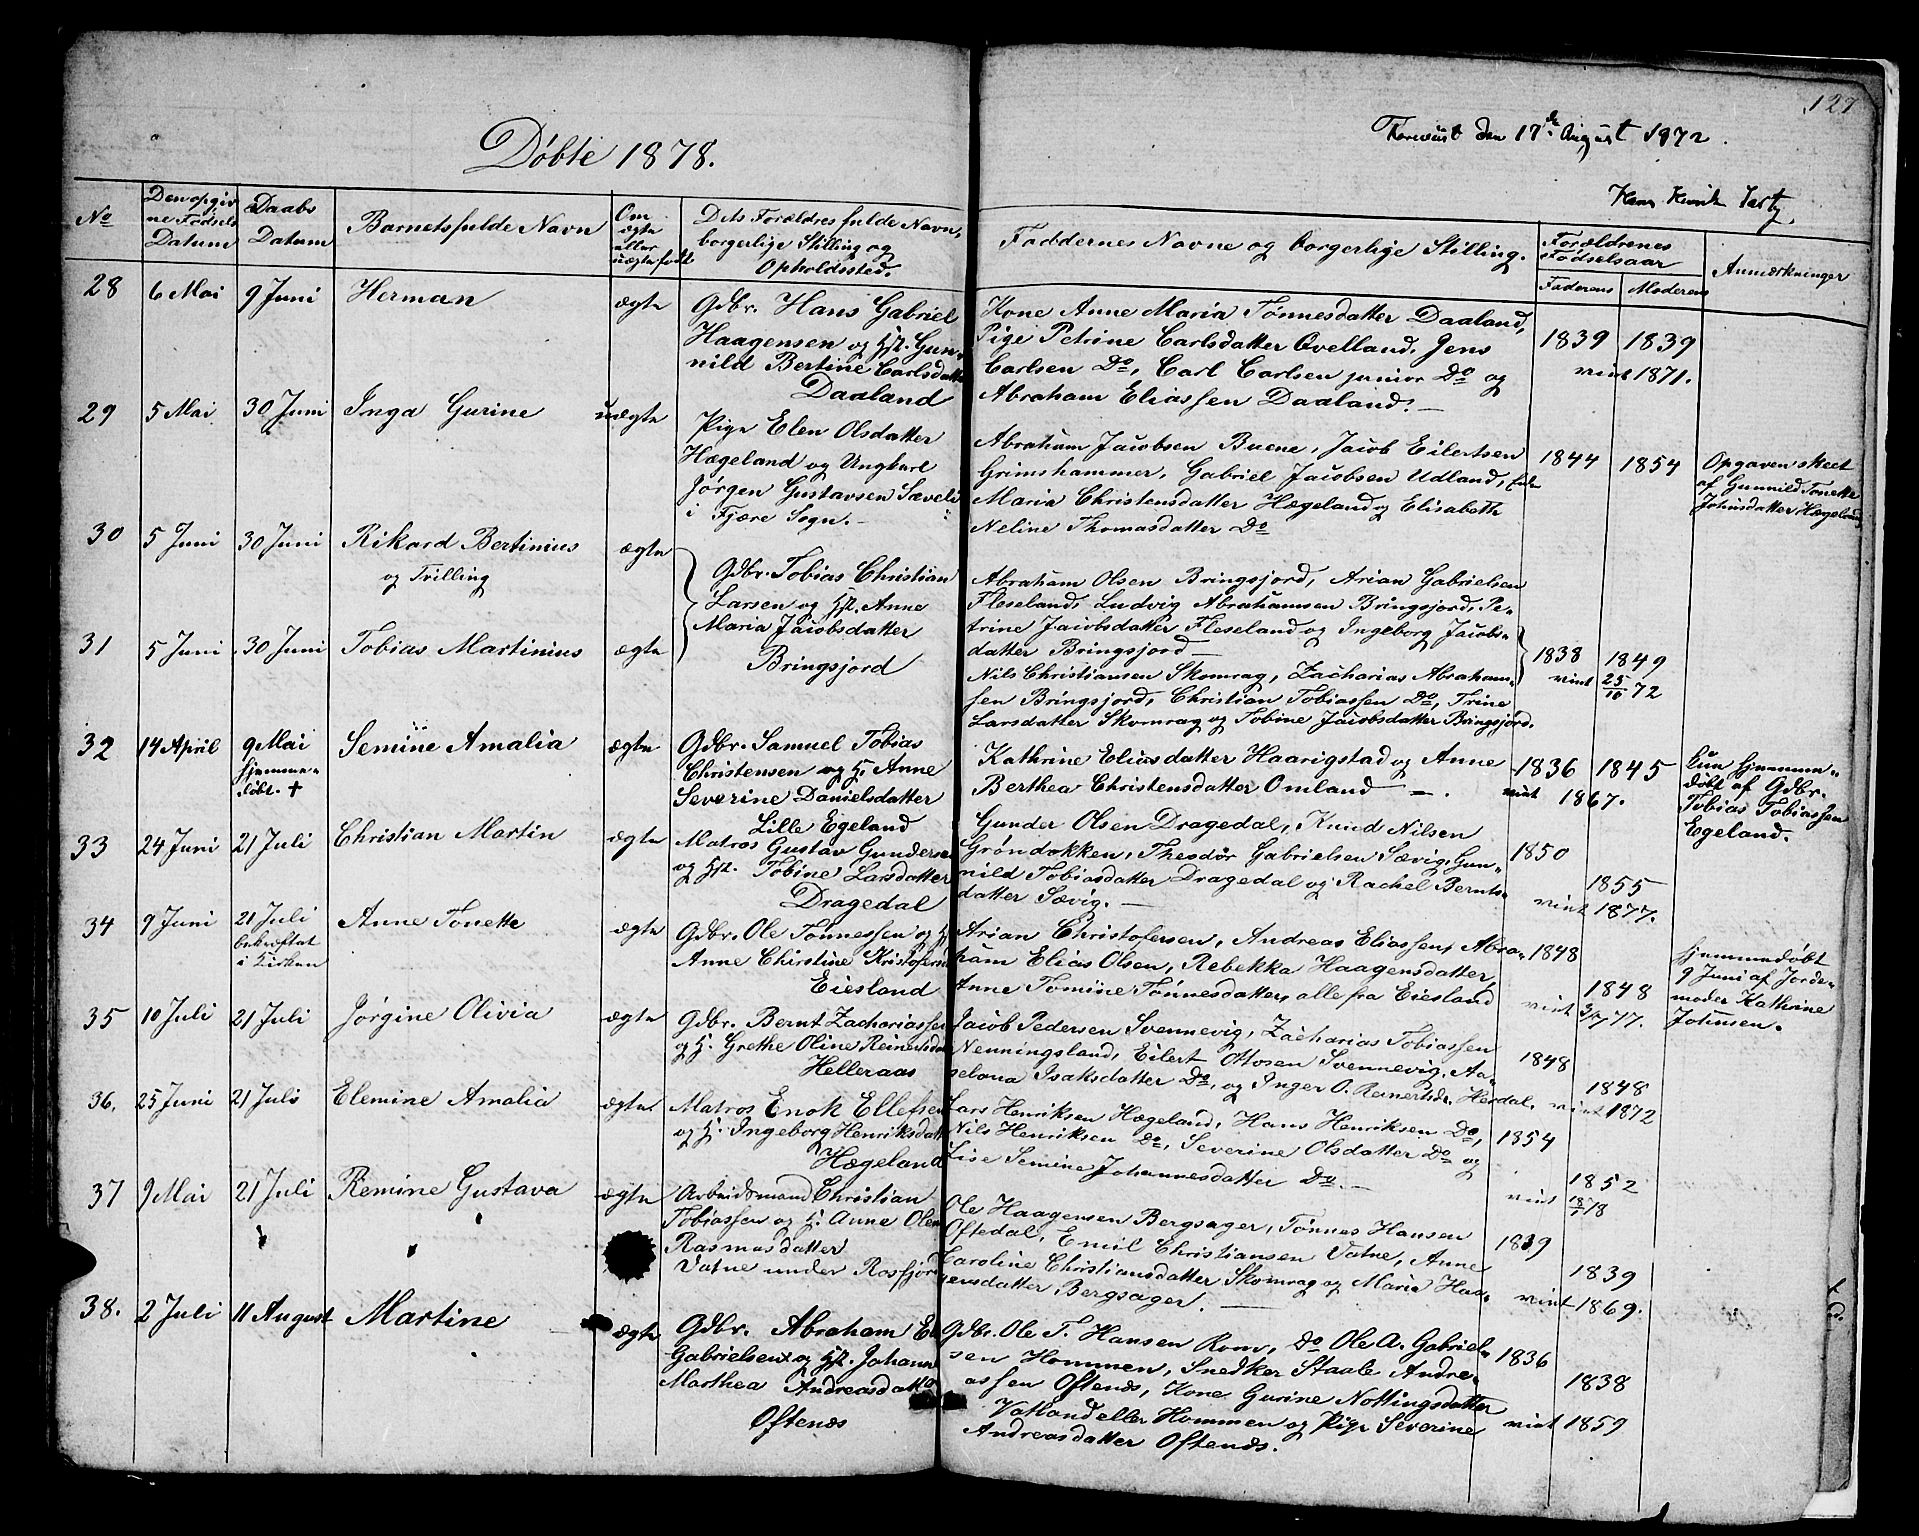 127
Forevist den 17de August 1872.
Døbte 1878.
No
Den opgiv
ne Fødsels
Datum
Daabs
Datum
Barnets fulde Navn
Om
ægte
eller
uægte født
Dets Forældres fulde Navn,
borgerlige Stilling og
Opholdssted.
Faddernes Navne og borgerlige Stilling.
Forældrenes
Fødselsaar
Faderens Moderens
Anmærkninger
28 6 Mai 9 Juni Herman ægte
Gdbr. Hans Gabriel
Haagensen og Hst. Gun-
nild Bertine Carlsdatter
Daaland
Kone Anne Maria Tønnesdatter Daaland,
Pige Petrine Carlsdatter Øvelland, Jens
Carlsen Do, Carl Carlsen junior Do og
Abraham Eliassen Daaland. —
1839 1839
viet 1871.
29 5 Mai 30 Juni Inga Gurine uægte
Pige Elen Olsdatter
Hægeland og Ungkarl
Jørgen Gustavsen Sæveli
i Fjære Sogn. —
Abraham Jacobsen Buene, Jacob Eilertsen
Grimshammer, Gabriel Jacobsen Udland,
Maria Christensdatter Hægeland og Elisabeth
Neline Thomasdatter Do
1844 1854
Opgaven skeet
af Gunnild Tonette
Johnsdatter Hægeland
30 5 Juni 30 Juni Rikard Bertinius ægte
og Tvilling
31 5 Juni 30 Juni Tobias Martinius ægte
Gdbr. Tobias Christian
Larsen og Hst. Anne
Maria Jacobsdatter
Bringsjord
Abraham Olsen Bringsjord, Arian Gabrielsen
Fleseland, Ludvig Abrahamsen Bringsjord, Pe-
trine Jacobsdatter Fleseland og Ingeborg Jacobs-
datter Bringsjord —
Nils Christiansen Skomrag, Zacharias Abraham-
sen Bringsjord, Christian Tobiassen Do, Trine
Larsdatter Skomrag og Tobine Jacobsdatter Bringsjord.
1838 1849
viet 25/10 72
32 14 April 9 Mai Semine Amalia ægte
hjemme-
døbt. +
Gdbr. Samuel Tobias
Christensen og H. Anne
Severine Danielsdatter
Lille Egeland
Kathrine Eliasdatter Haarigstad og Anne
Berthea Christensdatter Omland — .
1836 1845
viet 1867.
Kun hjemme-
døbt af Gdbr.
Tobias Tobiassen
Egeland.
33 24 Juni 21 Juli Christian Martin ægte
Matros Gustav Gundersen
og Hst. Tobine Larsdatter
Dragedal
Gunder Olsen Dragedal, Knud Nilsen
Grøndokken, Theodor Gabrielsen Sævig, Gun-
nild Tobiasdatter Dragedal og Rachel Bernts-
datter Sævig. —
1850
1855
viet 1877.
34 9 Juni 21 Juli Anne Tonette ægte
bekræftet
i Kirken
Gdbr. Ole Tønnessen og H.
Anne Christine Kristofersd
Eiesland
Arian Christofersen, Andreas Eliassen, Abra-
ham Elias Olsen, Rebekka Haagensdatter,
Anne Tomine Tønnesdatter, alle fra Eiesland
1848
1848
viet 3/7 77.
hjemmedøbt
9 Juni af Jorde-
moder Kathrine
Johnsen.
35 10 Juli 21 Juli Jørgine Olivia ægte
Gdbr. Bernt Zachariassen
og H. Grethe Oline Reinertsdat
Helleraas
Jacob Pedersen Svennevig, Zacharias Tobiassen
Nenningsland, Eilert Ottosen Svennevig, Aa-
selona Isaksdatter Do, og Inger O. Reinertsdr. Herdal.
1848
1848
viet 1872
36. 25 Juni 21 Juli Elemine Amalia ægte
Matros Enok Ellefsen
og H. Ingeborg Henriksdatt
Hægeland
Lars Henriksen Hægeland, Hans Henriksen Do,
Nils Henriksen Do, Severine Olsdatter Do og
Lise Semine Johannesdatter Do. —
1854
1852
viet 18/1 78
37 9 Mai 21 Juli Remine Gustava ægte
Arbeidsmand Christian
Tobiassen og H. Anne Olene
Rasmusdatter
Vatne under Rosfjord
Ole Haagensen Bergsager, Tønnes Hansen
Oftedal, Emil Christiansen Vatne, Anne
Caroline Christiansdatter Skomrag og Maria Haa-
gensdatter Bergsager. —
1839
1839
viet 1869.
38. 2 Juli 11 August Martine ægte
Gdbr. Abraham El
Gabrielsen og Hst. Johann
Marthea Andreasdatte
Oftenes
Gdbr. Ole T. Hansen Rom, Do Ole A. Gabriel-
sen Hommen, Snedker Staale Andre-
assen Oftenes, Kone Gurine Nottingsdatter
Vatland eller Hommen og Pige Severine
Andreasdatter Oftenes.
1836
1838
viet 1859